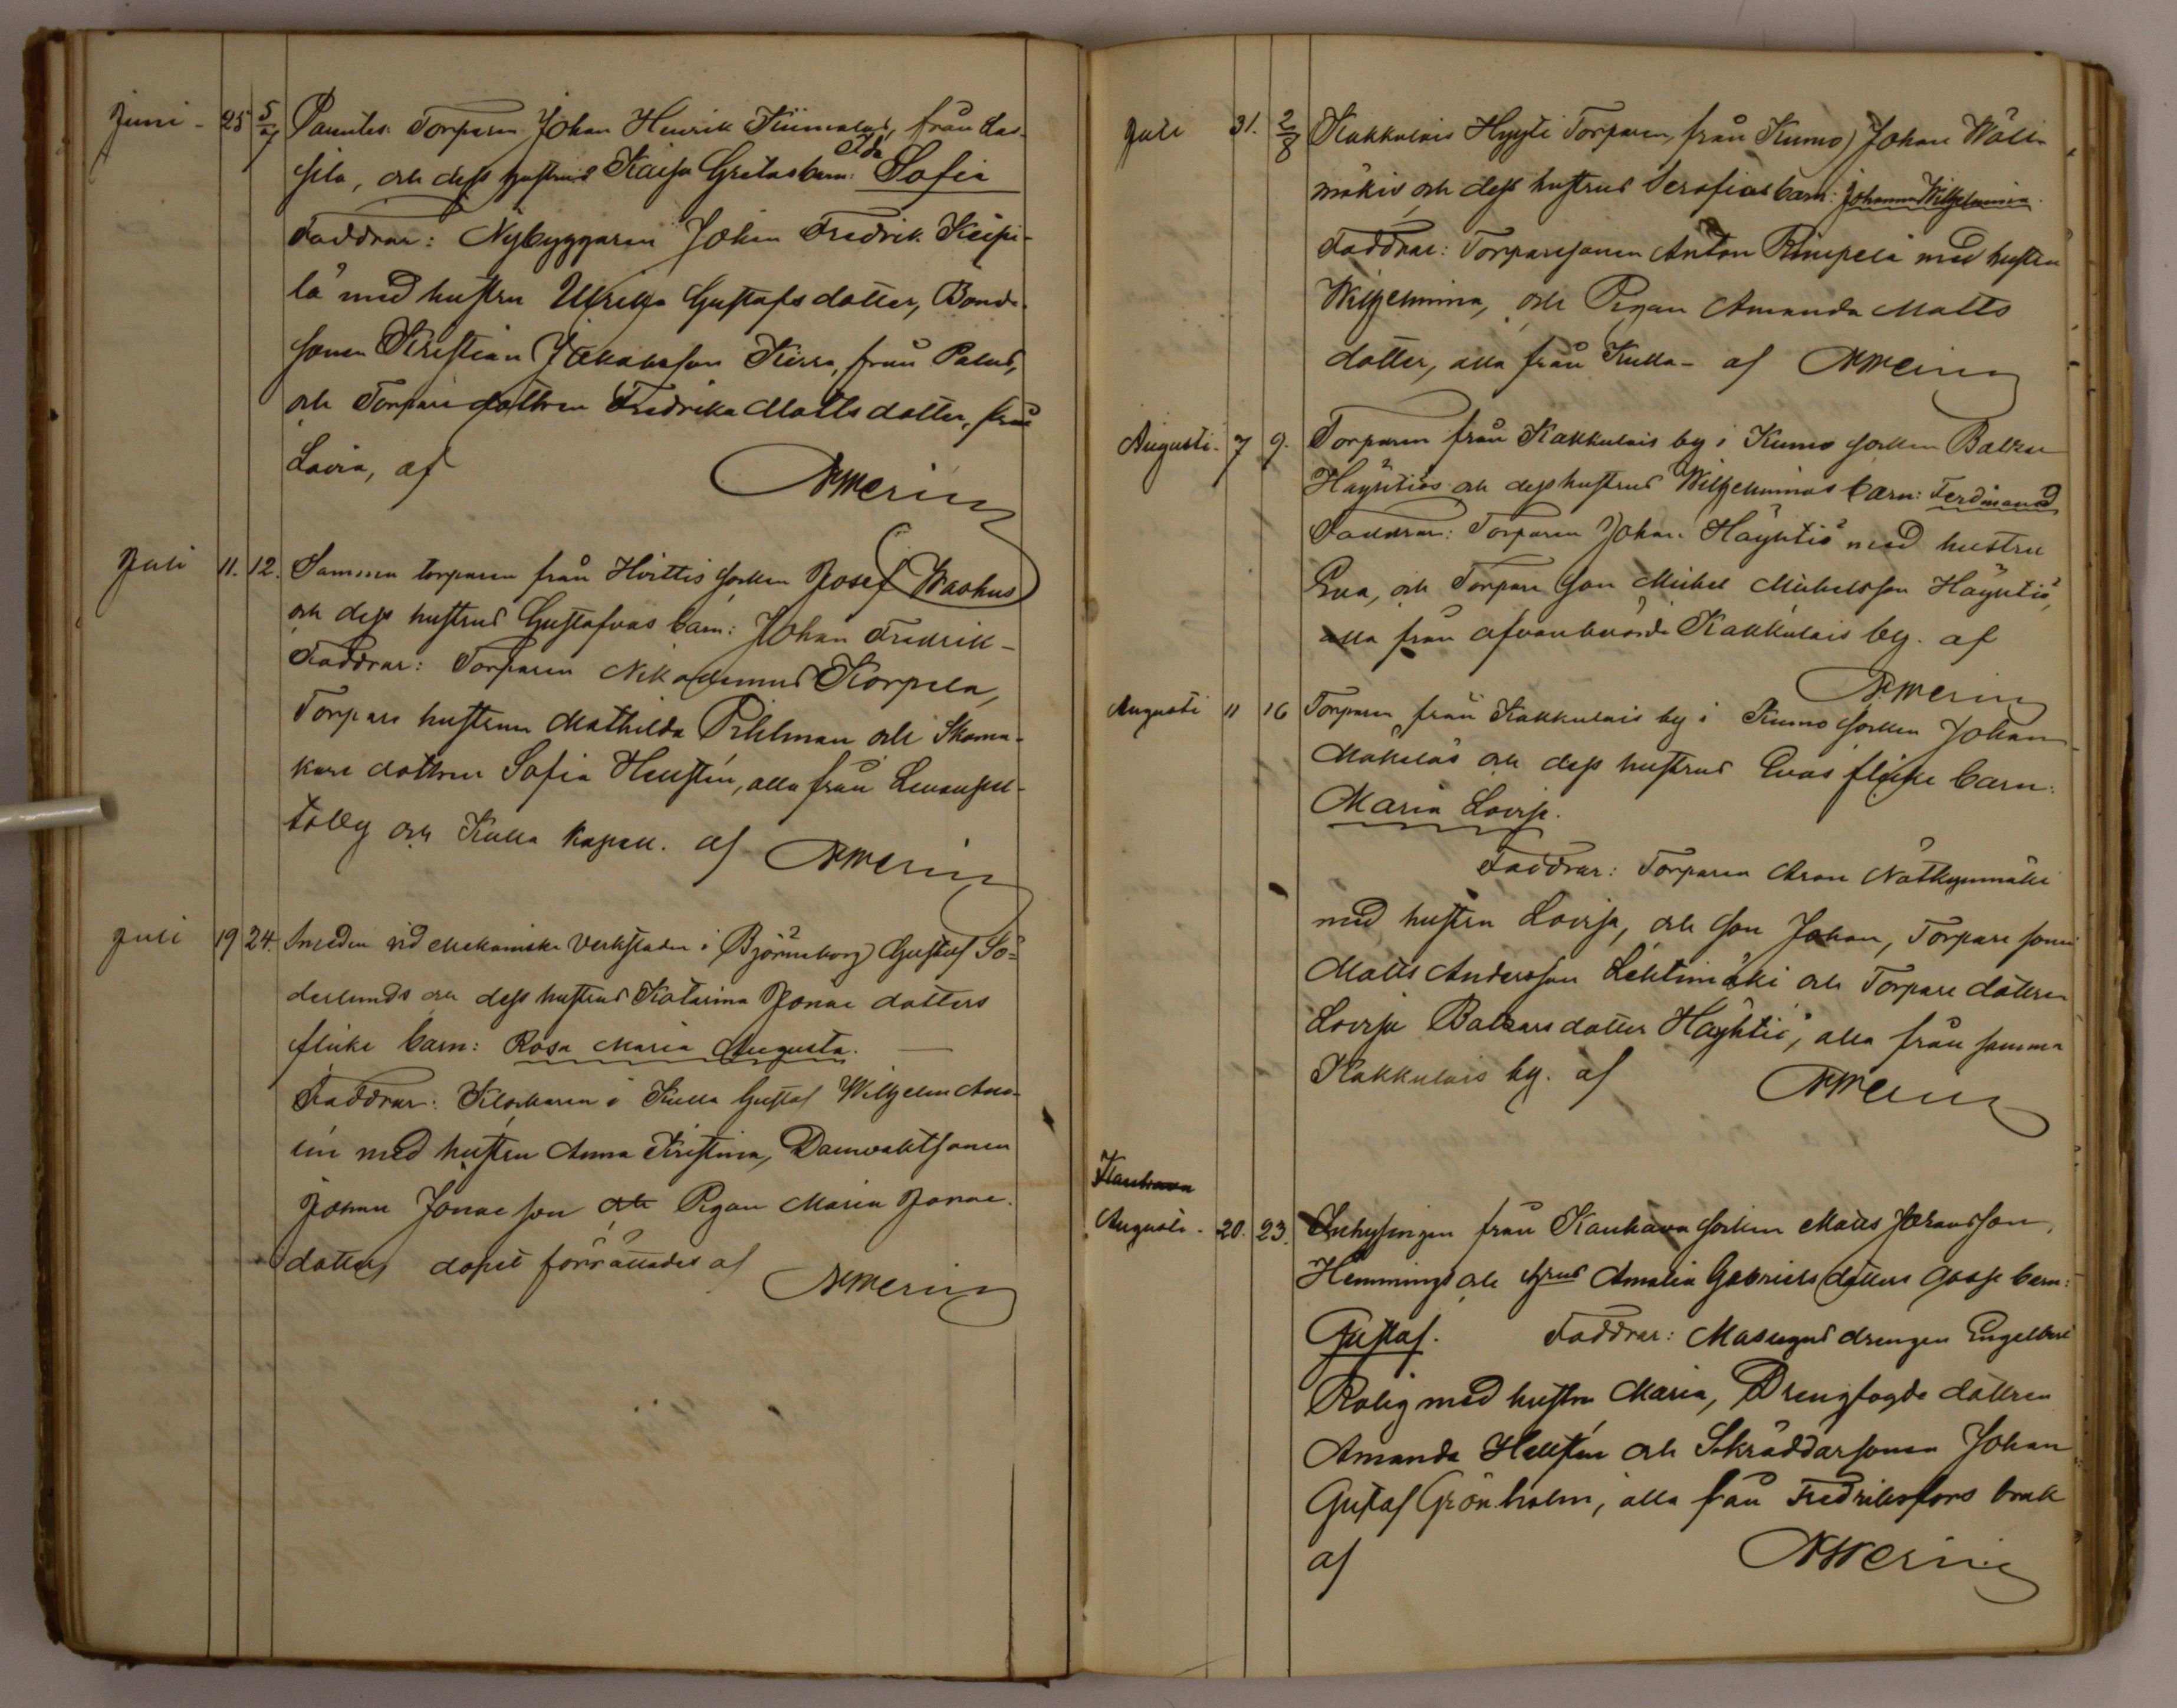 Juni - 25 5/7 Parentes: Torparen Johan Henrik Kiimalas, från Las-
Ida
sila, och dess hustrus Kaisa Gretas barn: Sofia
Faddrar: Nybyggaren Johan Fredrik Keipi-
lä med hustru Ulrika Gustafsdotter, Bonde
sonen Kristian Jakobsson Kirra, från Palus,
och Torparedottren Fredrika Mattsdotter, från
Lavia, af
Juli 11. 12. torparen från Hvittis socken Josef Waahus
och dess hustrus Gustafvas barn: Johan Fredrik -
Faddrar: Torparen Nikodemus Korpela,
Torpare hustrun Mathilda Pihlman och Skoma-
kare dottren Sofia Hellstén, alla från
och Kulla kapell. af
Juli 19 24. Smeden vid Mekaniska Verkstaden i Björneborg Gustaf Sö-
derlunds och dess hustrus Katarina Jonae dotters
flicke barn: Rosa Maria Augusta. -
Faddrar: Klockaren i Kulla Gustaf Wilhelm
med hustru Anna Kristina, Damvaktsonen
Johan Jonae son och Pigan Maria Jonae
dotter, dopet förrättades af
Juli 31. 2/8 Kakkulais Hyyti Torparen, från Kumo, Johan Wäli-
mäkis och dess hustrus Serafias barn: Johanna Wilhelmina.
Faddrar: Torparesonen Anton Rimpelä med hustru
Wilhelmina, och Pigan Amanda Matts
dotter, alla från Kulla - af
Augusti. 7 9. Torparen från Kakkulais by i Kumo socken
Häyhtiös och dess hustrus Wilhelminas barn: Ferdinand
Faddrar: Torparen Johan Häyhtiö med hustru
Eva, och Torpare son Mickel Mickelsson Häyhtiö,
alla från ofvanberörde Kakkulais by. af
Augusti 11 16 Torparen från Kakkulais by i Kumo socken Johan
Mäkeläs och dess hustrus Evas flicke barn:
Maria Lovisa.
Faddrar: Torparen Aron Nätkynmäki
med hustru Lovisa, och son Johan, Torpare sonen
Matts Andersson Lehtimäki och Torpare dottren
Lovisa dotter Häyhtiö, alla från samma
Kakkulais by. af
Kauhava
Augusti - 20. 23. Inhysingen från Kauhava socken Matts Johansson
Hemmings och hustrus Amalia Gabrielsdotters gosse barn:
Gustaf. Faddrar: Masugnsdrengen Engelbert
Rolig med hustru Maria, Drengfogde dottren
Amanda Hellstén och Skräddarsonen Johan
Gustaf Grönholm, alla från Fredriksfors bruk
af